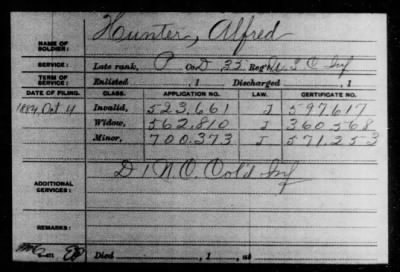 NAME OF SOLDIER: Hunter, Alfred
SERVICE: Late rank, P Co. D, 35 Reg't U.S.C. Inf
TERM OF SERVICE: Enlisted , 1 Discharged , 1
DATE OF FILING. CLASS. APPLICATION NO. LAW. CERTIFICATE NO.
1884, Oct 4 Invalid, 523,661 J 597,617
Widow, 562,810 J 360,568
Minor, 700,373 J 571,253
ADDITIONAL SERVICES: D 1 N.C. Col'd Inf
REMARKS:
Died , 1 , at